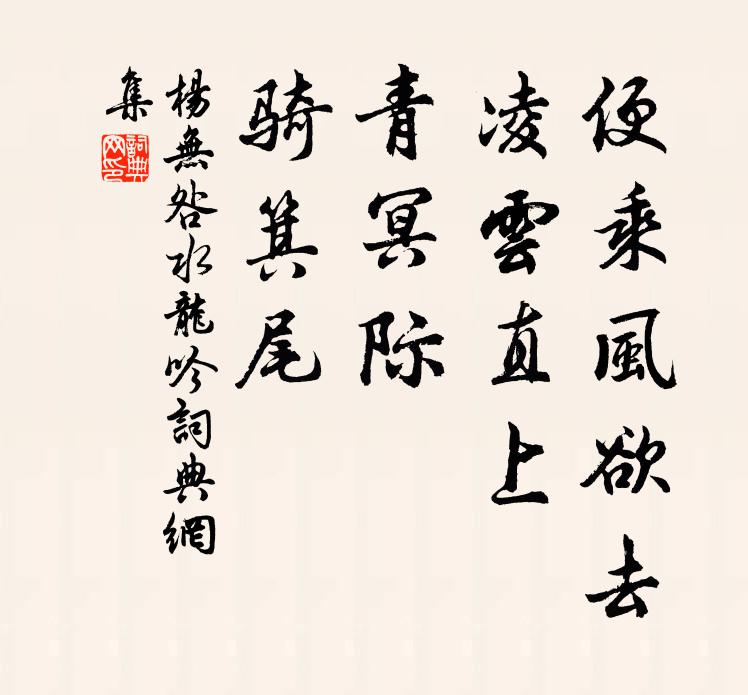 便乘風欲去
凌雲直上
青冥际
骑箕尾
楊無咎水龍吟詞典網
集
詞典
网印